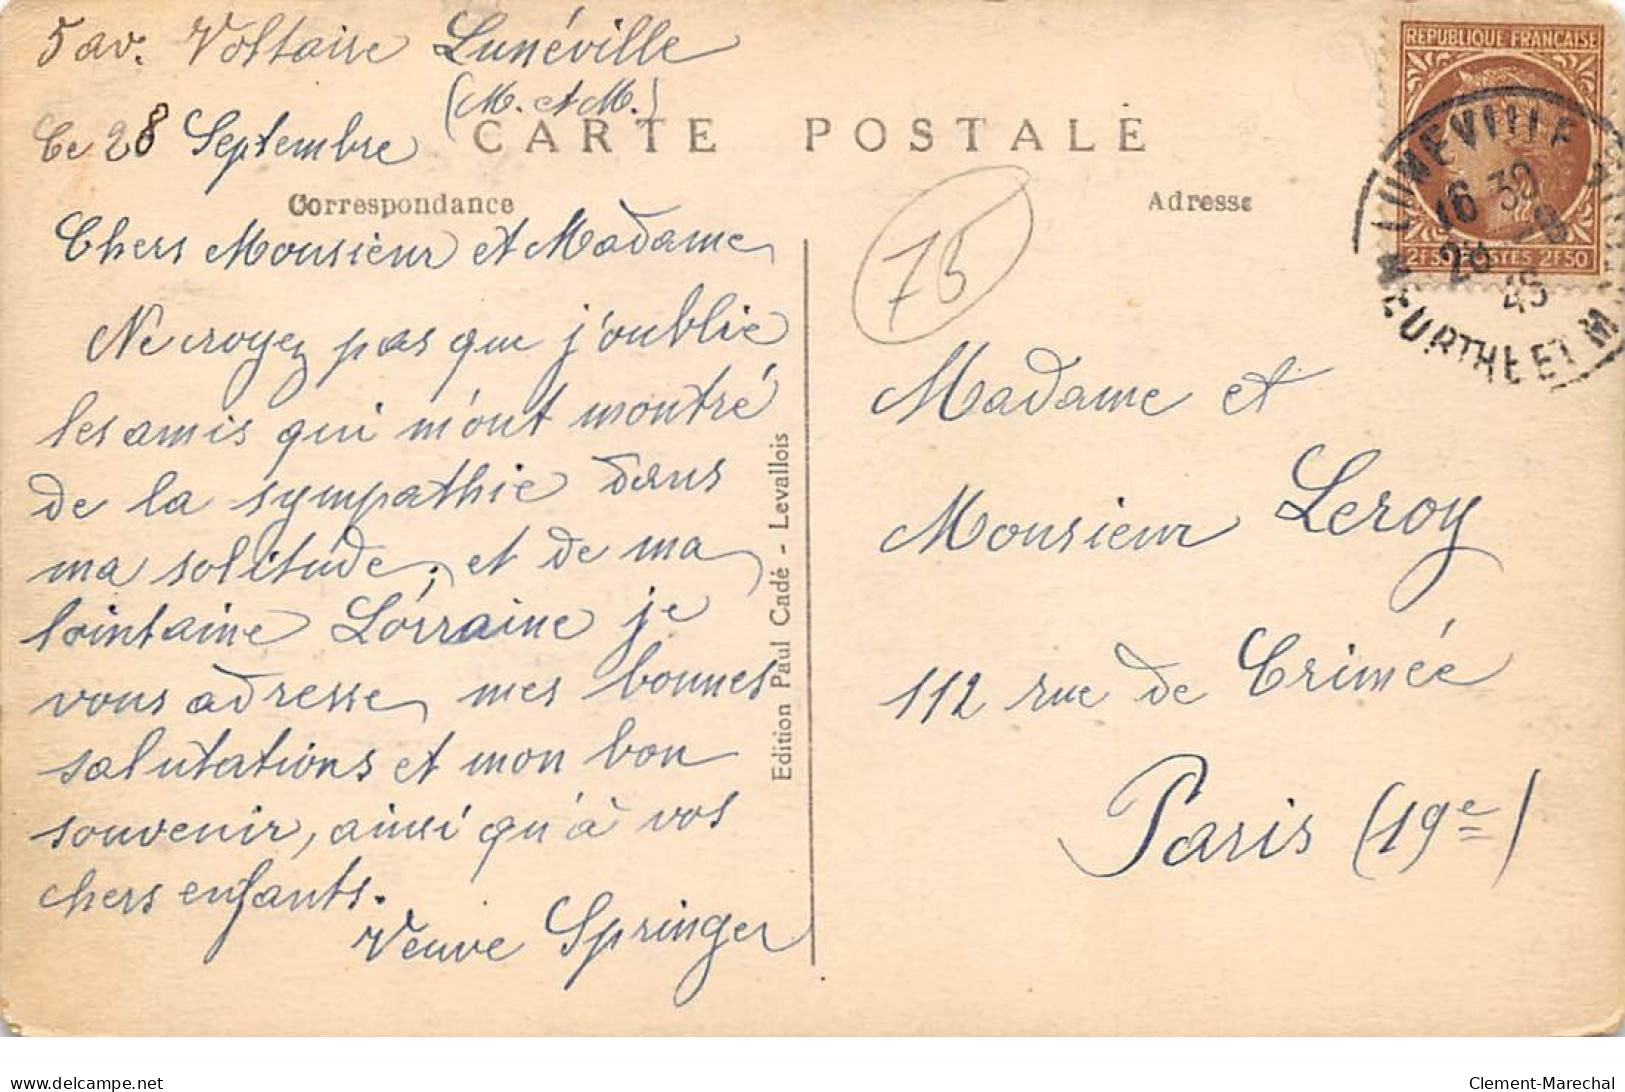 5 av. Voltaire Lunéville
(M. et M.)
Ce 28 Septembre
CARTE POSTALE
Correspondance
Chers Monsieur et Madame,
Ne croyez pas que j'oublie
les amis qui m'ont montré
de la sympathie dans
ma solitude, et de ma
lointaine Lorraine je
vous adresse, mes bonnes
salutations et mon bon
souvenir, ainsi qu'à vos
chers enfants.
Veuve Springer
Edition Paul Cadé - Levallois
Adresse
75
REPUBLIQUE FRANÇAISE
2F50 POSTES 2F50
LUNEVILLE
16 30
28 -9
45
MEURTHE ET M
Madame et
Monsieur Leroy
112 rue de Crimée
Paris (19e)
www.delcampe.net
Clement-Marechal